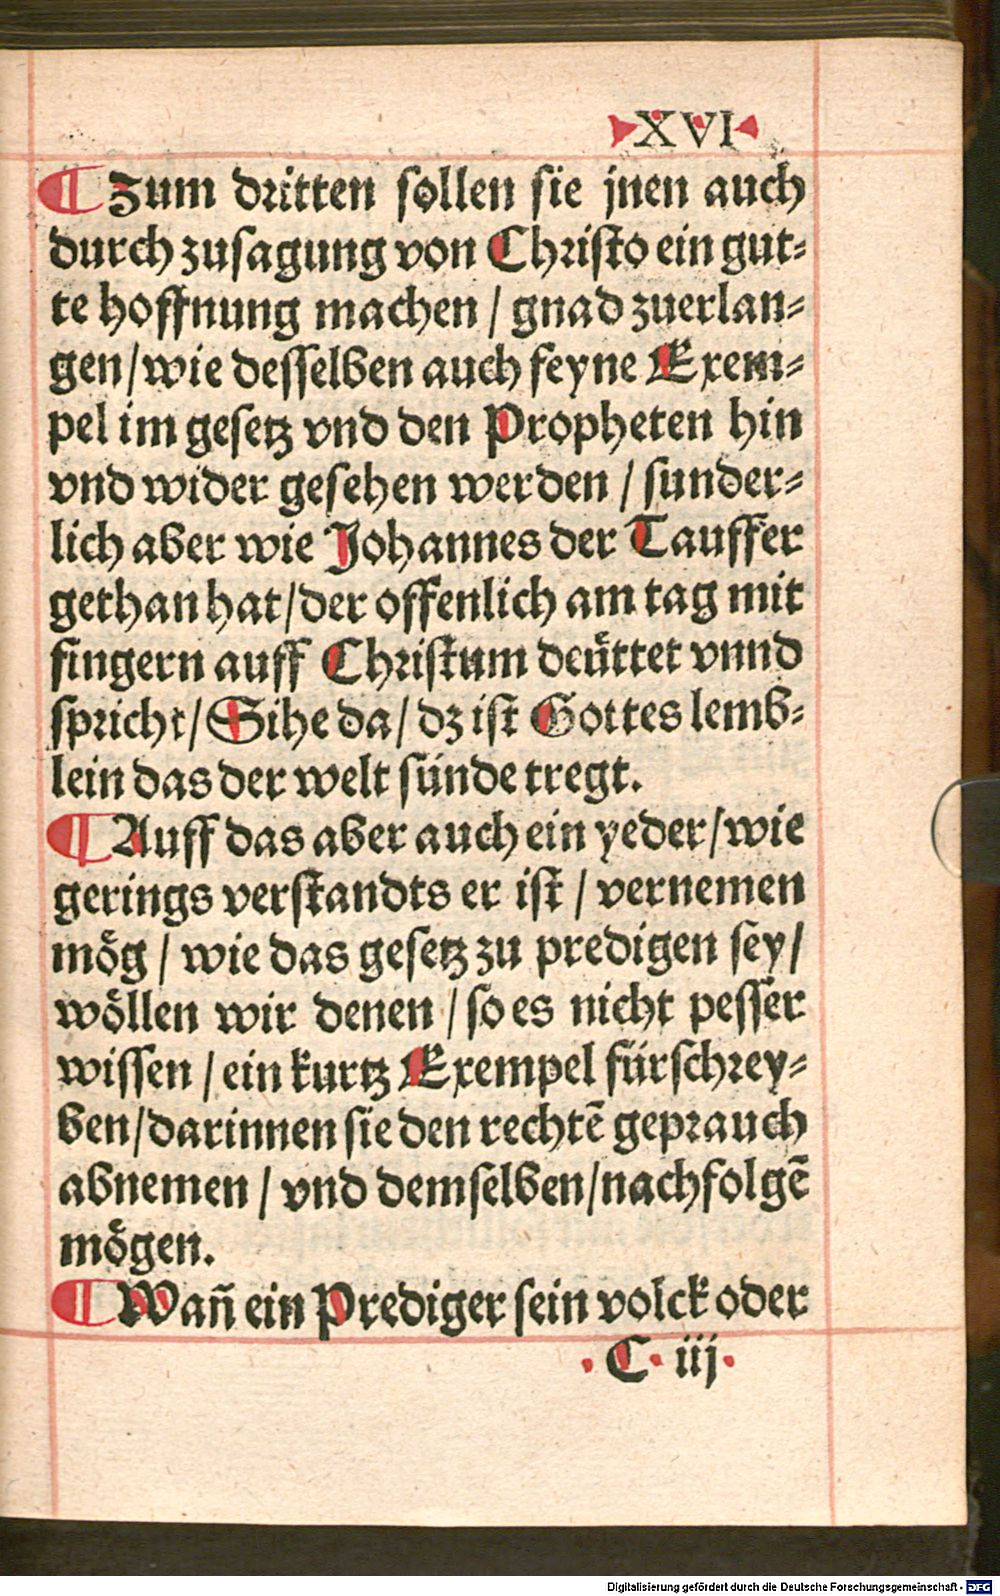 XVI
¶ Zum dritten sollen sie jnen auch
durch zusagung von Christo ein gut⸗
te hoffnung machen / gnad zuerlan⸗
gen / wie desselben auch feyne Exem⸗
pel im gesetz vnd den Propheten hin
vnd wider gesehen werden / sunder⸗
lich aber wie Johannes der Tauffer
gethan hat / der offenlich am tag mit
fingern auff Christum deüttet vnnd
spricht / Sihe da / dz ist Gottes lemb⸗
lein das der welt sünde tregt.
¶ Auff das aber auch ein yeder / wie
gerings verstandts er ist / vernemen
mög / wie das gesetz zu predigen sey /
wöllen wir denen / so es nicht pesser
wissen / ein kurtz Exempel fürschrey⸗
ben / darinnen sie den rechtē geprauch
abnemen / vnd demselben / nachfolgē
mögen.
¶ Wañ ein Prediger sein volck oder
C iij
Digitalisierung gefördert durch die Deutsche Forschungsgemeinschaft - DFG